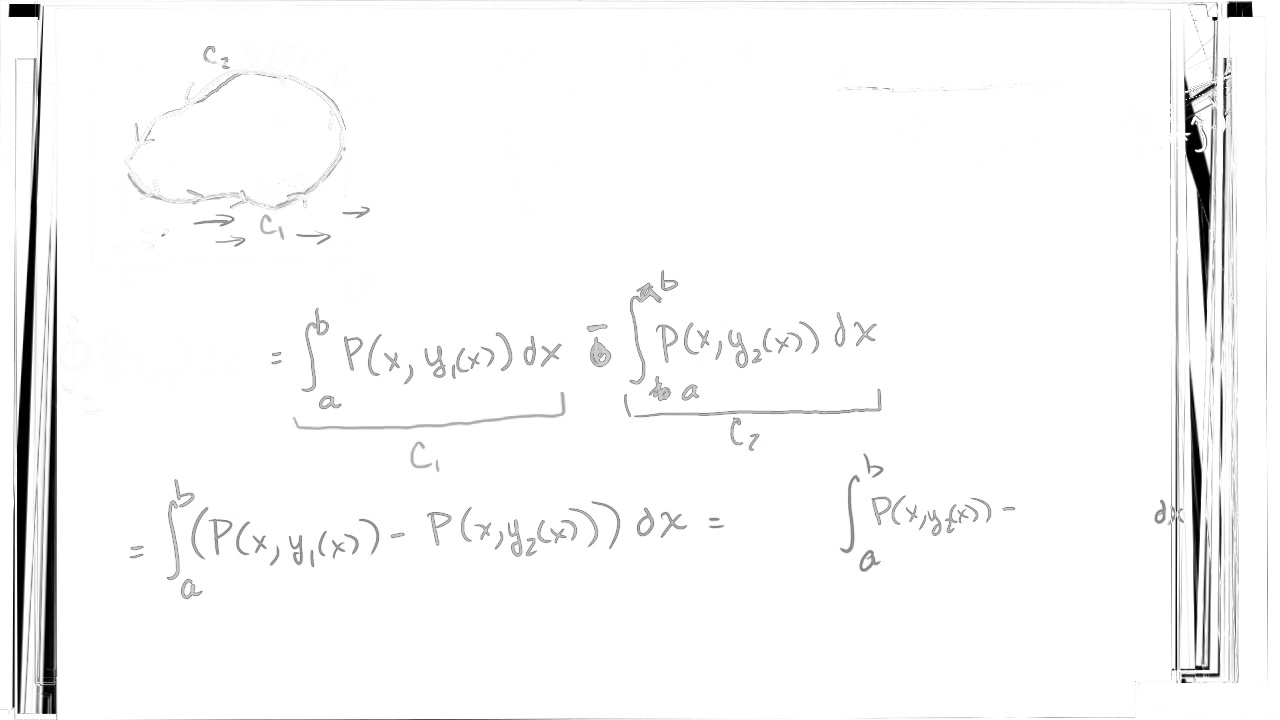 C₂
C₁
= ∫ₐᵇ P(x, y₁(x)) dx - ∫ₐᵇ P(x, y₂(x)) dx
C₁ C₂
= ∫ₐᵇ (P(x, y₁(x)) - P(x, y₂(x))) dx = ∫ₐᵇ P(x, y₂(x)) - dx